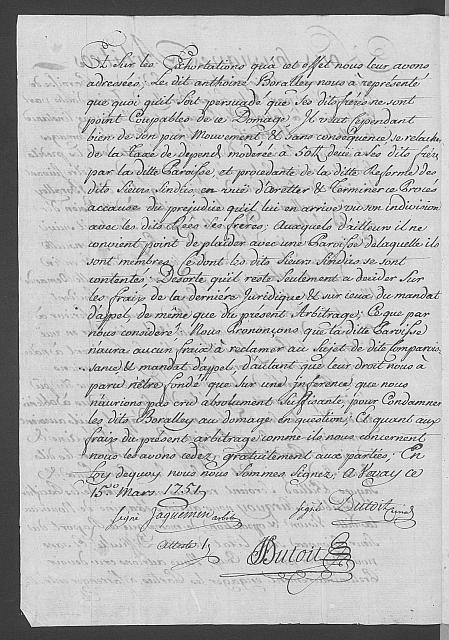 Et sur les Exhortations qu'a cet effet nous leur avons
adressées, Le dit anthoine Boralley nous à représenté
que quoy qu'il soit persuadé que ses dits frères ne sont
point Coupables de ce Domage, Il veut cependant
bien de son pur Mouvement & sans consequence, se relacher
de la Taxe de depend modérée à 50 ₶ deüe à ses dits frères
par la ditte Paroisse, et procedante de la ditte Reforme des
dits Sieurs Sindics, en vuë d'aretter & terminer ce Procès
accause du prejudice qu'il lui en arrive vù son indivision
avec les dits ses freres, Auxquels d'ailleurs il ne
convient point de plaider avec une Paroisse delaquelle ils
sont membres, Se dont les dits Sieurs Sindics se sont
contentés; Desorte qu'il reste seulement a decider sur
les fraix de la dernière Juridique & sur ceux du mandat
d'apel, de même que du present Arbitrage; Ce que par
nous consideré; Nous Prononçons que la ditte Paroisse
n'aura aucun fraix à reclamer au Sujet de dite Comparois-
sance & mandat d'apel, d'autant que leur droit nous à
paru n'être fondé que sur une inference que nous
n'aurions pas cru absolument Suffisante, pour Condamner
les dits Boralley au domage en question; Et quant aux
fraix du present arbitrage comme ils nous concernent
nous les avons cedez gratuitement aux parties, En
Foy dequoy nous nous sommes signez, a Vevay ce
15.e Mars 1751
signé Jaquemin arbitre signé Dutoit
Attesté
Dutoit